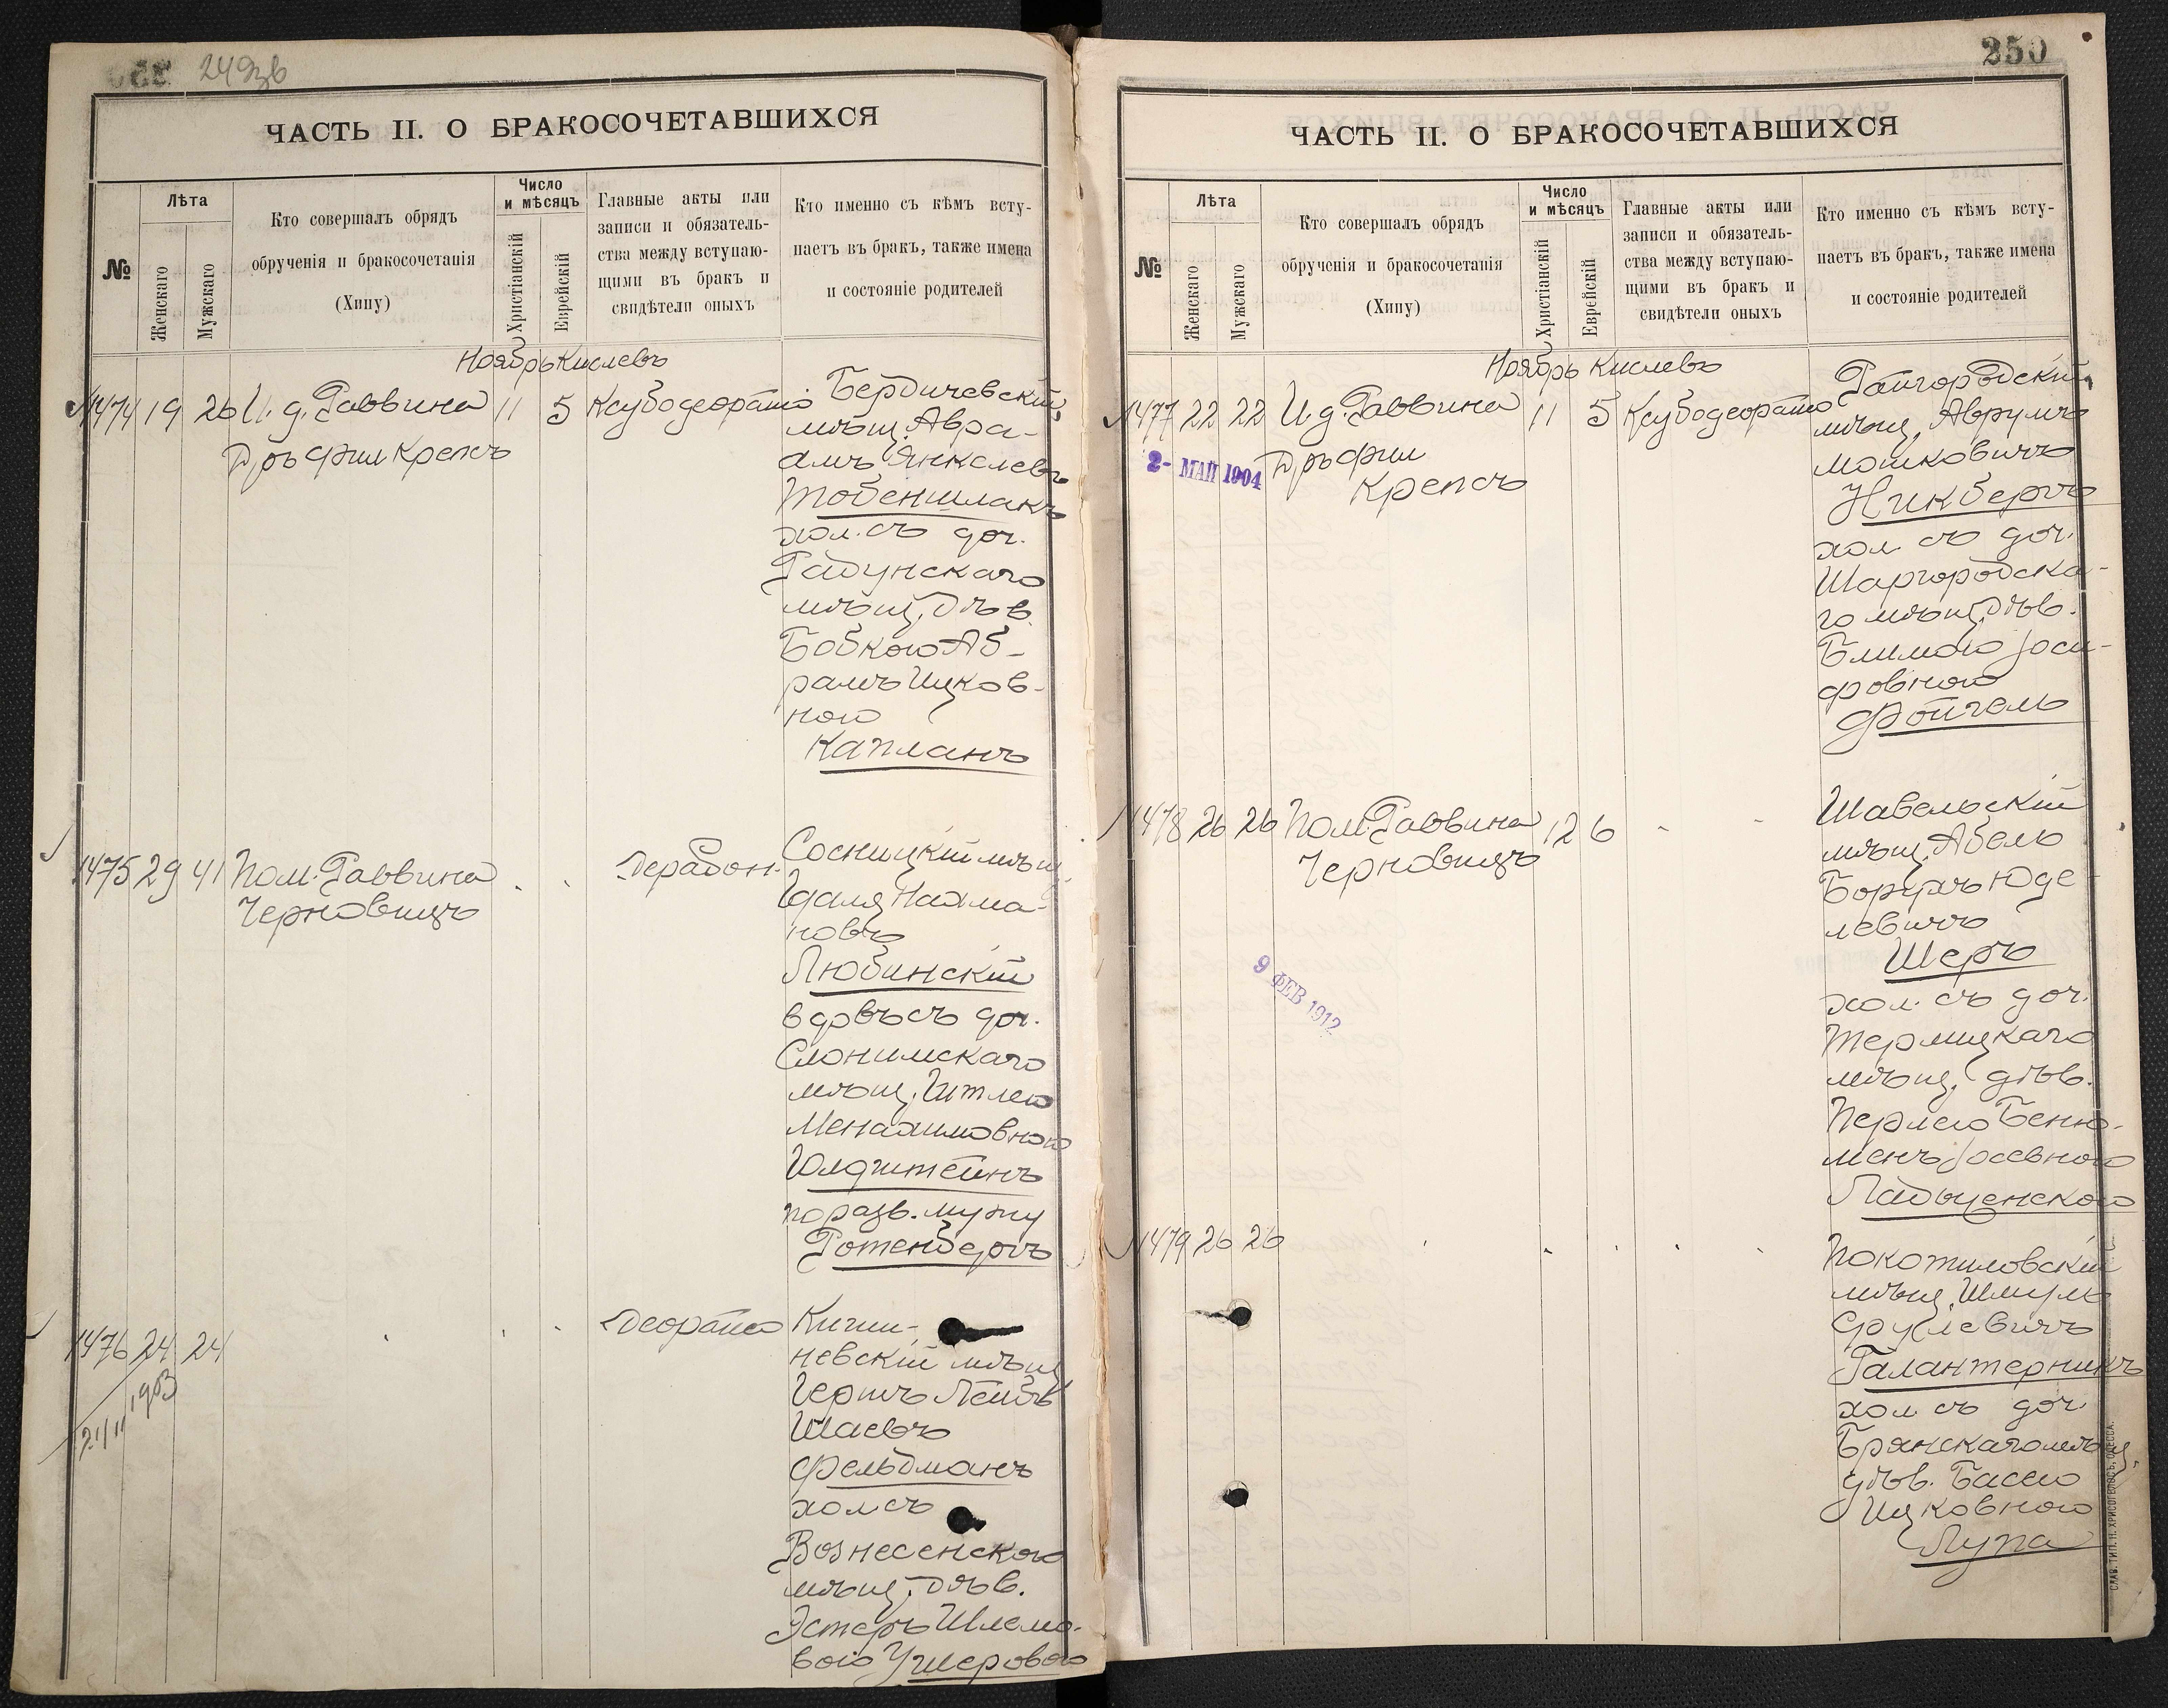 249зв
ЧАСТЬ II. О БРАКОСОЧЕТАВШИХСЯ
№
Лѣта
Женскаго
Мужскаго
Кто совершалъ обрядъ
обрученія и бракосочетанія
(Хипу)
Число
и мѣсяцъ
Христіанскій
Еврейскій
Главные акты или
записи и обязатель-
ства между вступаю-
щими въ бракъ и
свидѣтели оныхъ
Кто именно съ кѣмъ всту-
паетъ въ бракъ, также имена
и состояніе родителей
Ноябрь Кислевъ
1474 19 26 И. д. Раввина 11 5
Д-ръ Фил Крепсъ
Бердичевскій
мѣщ. Авра-
амъ Янкелевъ
Тобеншлакъ
хол. съ доч.
Радунскаго
мѣщ. дѣв.
Бобкою Аб-
рамъ Ицков-
ною
Капланъ
1475 29 41 Пом. Раввина
Черновицъ
Сосницкій мѣщ.
Гдаля Нахма-
новъ
Любинскій
вдовъ съ доч.
Слонимскаго
мѣщ. Итлею
Менахимовною
Голдштейнъ
по разв. мужу
Ротенбергъ
1476 24 24
1903
21/11
Киши-
невскій мѣщ
Гершъ Лейбъ
Шаевъ
Фельдманъ
хол съ
Вознесенского
мѣщ. дѣв.
Эстеръ Шлемо-
вою Ушеровою
250
ЧАСТЬ II. О БРАКОСОЧЕТАВШИХСЯ
№
Лѣта
Женскаго
Мужскаго
Кто совершалъ обрядъ
обрученія и бракосочетанія
(Хипу)
Число
и мѣсяцъ
Христіанскій
Еврейскій
Главные акты или
записи и обязатель-
ства между вступаю-
щими въ бракъ и
свидѣтели оныхъ
Кто именно съ кѣмъ всту-
паетъ въ бракъ, также имена
и состояніе родителей
Ноябрь Кислевъ
1477 22 22 И. д. Раввина 11 5
Д-ръ Фил
Крепсъ
2- МАЙ 1904
Райгородскій
мѣщ. Аврумъ
Мошковичъ
Никбергъ
хол. съ доч.
Шаргородска-
го мѣщ. дѣв.
Блимою Іоси-
фовною
Фойгель
1478 26 26 Пом. Раввина 12 6
Черновицъ
9 ФЕВ 1912
Шавельскій
мѣщ. Абель
Борухъ Юде-
левичъ
Шеръ
хол. съ доч.
мѣщ. дѣв.
Перлею Беню-
менъ Іосевною
1479 26 26
Покотиловскій
мѣщ. Шмуль
Срулевичъ
Галантерникъ
хол. съ доч.
Брянскаго мѣщ.
дѣв. Басею
Ицковною
Лупа
СЛАВ. ТИП. Н. ХРИСОГЕЛОСЪ, ОДЕССА.